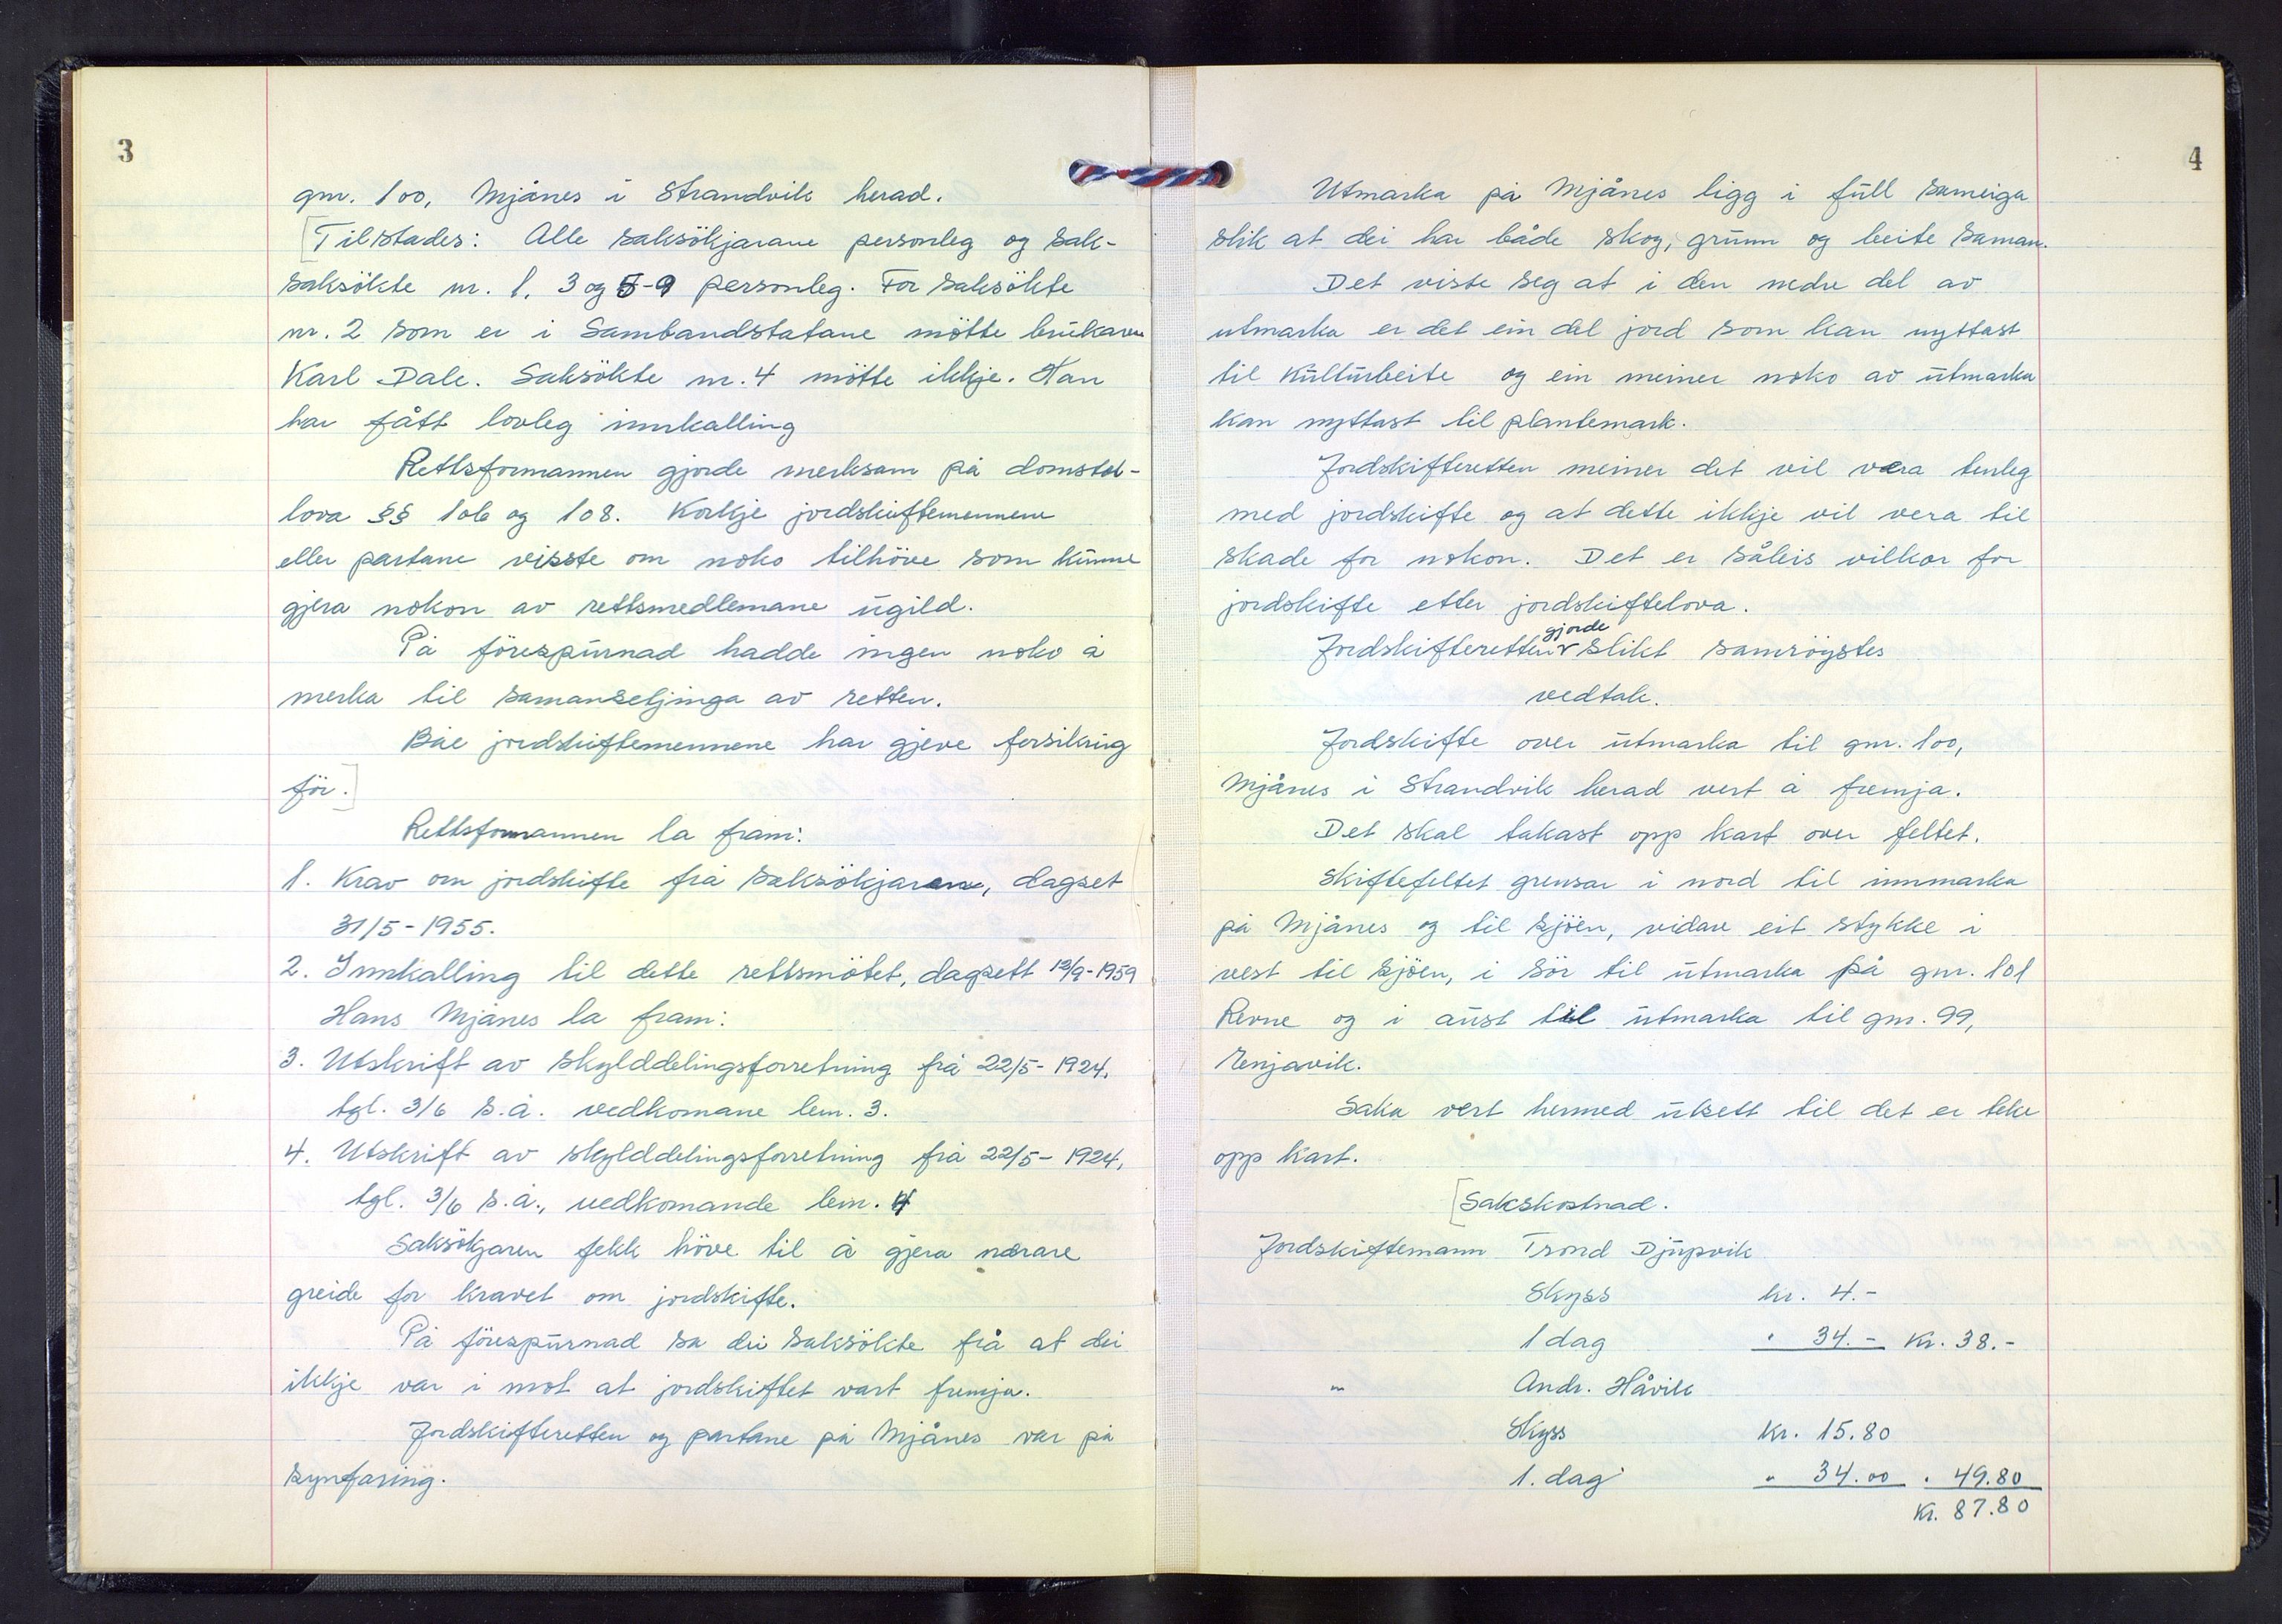 3
gnr. 100, Mjånes i Strandvik herad.
[Tilstades: Alle saksökjarane personleg og sak-
saksökte nr. 1, 3 og 5-9 personleg. For saksökte
nr. 2 som er i Sambandstatane mötte brukaren
Karl Dale. Saksökte nr. 4 mötte ikkje. Han
har fått lovleg innkalling
Rettsformannen gjorde merksam på domstol-
lova §§ 106 og 108. Korkje jordskiftemennene
eller partane visste om noko tilhöve som kunne
gjera nokon av rettsmedlemane ugild.
På förespurnad hadde ingen noko å
merka til samansetjinga av retten.
Båe jordskiftemennene har gjeve forsikring
för.]
Rettsformannen la fram:
1. Krav om jordskifte frå saksökjarane, dagset
31/5-1955.
2. Innkalling til dette rettsmötet, dagsett 13/9-1959
Hans Mjånes la fram:
3. Utskrift av skylddelingsforretning frå 22/5-1924,
tgl. 3/6 s.å. vedkomane lem. 3.
4. Utskrift av skylddelingsforretning frå 22/5-1924,
tgl. 3/6 s.å., vedkomande lem. 4
Saksökjaren fekk höve til å gjera nærare
greide for kravet om jordskifte.
På förespurnad sa dei saksökte frå at dei
ikkje var i mot at jordskiftet vart fremja.
Jordskifteretten og partane på Mjånes var på
synfaring.
4
Utmarka på Mjånes ligg i full sameiga
slik at dei har både skog, grunn og beite saman.
Det viste seg at i den nedre del av
utmarka er det ein del jord som kan nyttast
til kulturbeite og ein meiner noko av utmarka
kan nyttast til plantemark.
Jordskifteretten meiner det vil væra tenleg
med jordskifte og at dette ikkje vil vera til
skade for nokon. Det er såleis vilkår for
jordskifte etter jordskiftelova.
gjorde
Jordskifteretten v slikt samröystes
vedtak.
Jordskifte over utmarka til gnr. 100,
Mjånes i Strandvik herad vert å fremja.
Det skal takast opp kart over feltet.
Skiftefeltet grensar i nord til innmarka
på Mjånes og til sjöen, vidare eit stykke i
vest til sjöen, i sör til utmarka på gnr. 101
Revne og i aust til utmarka til gnr. 99,
Renjavik.
Saka vert hermed utsett til det er teke
opp kart.
[Sakskostnad.
Jordskiftemann Trond Djupvik
Skyss kr. 4.-
1 dag " 34.- Kr. 38.-
" Andr. Håvik
Skyss Kr. 15.80
1. dag " 34.00 " 49.80
Kr. 87.80